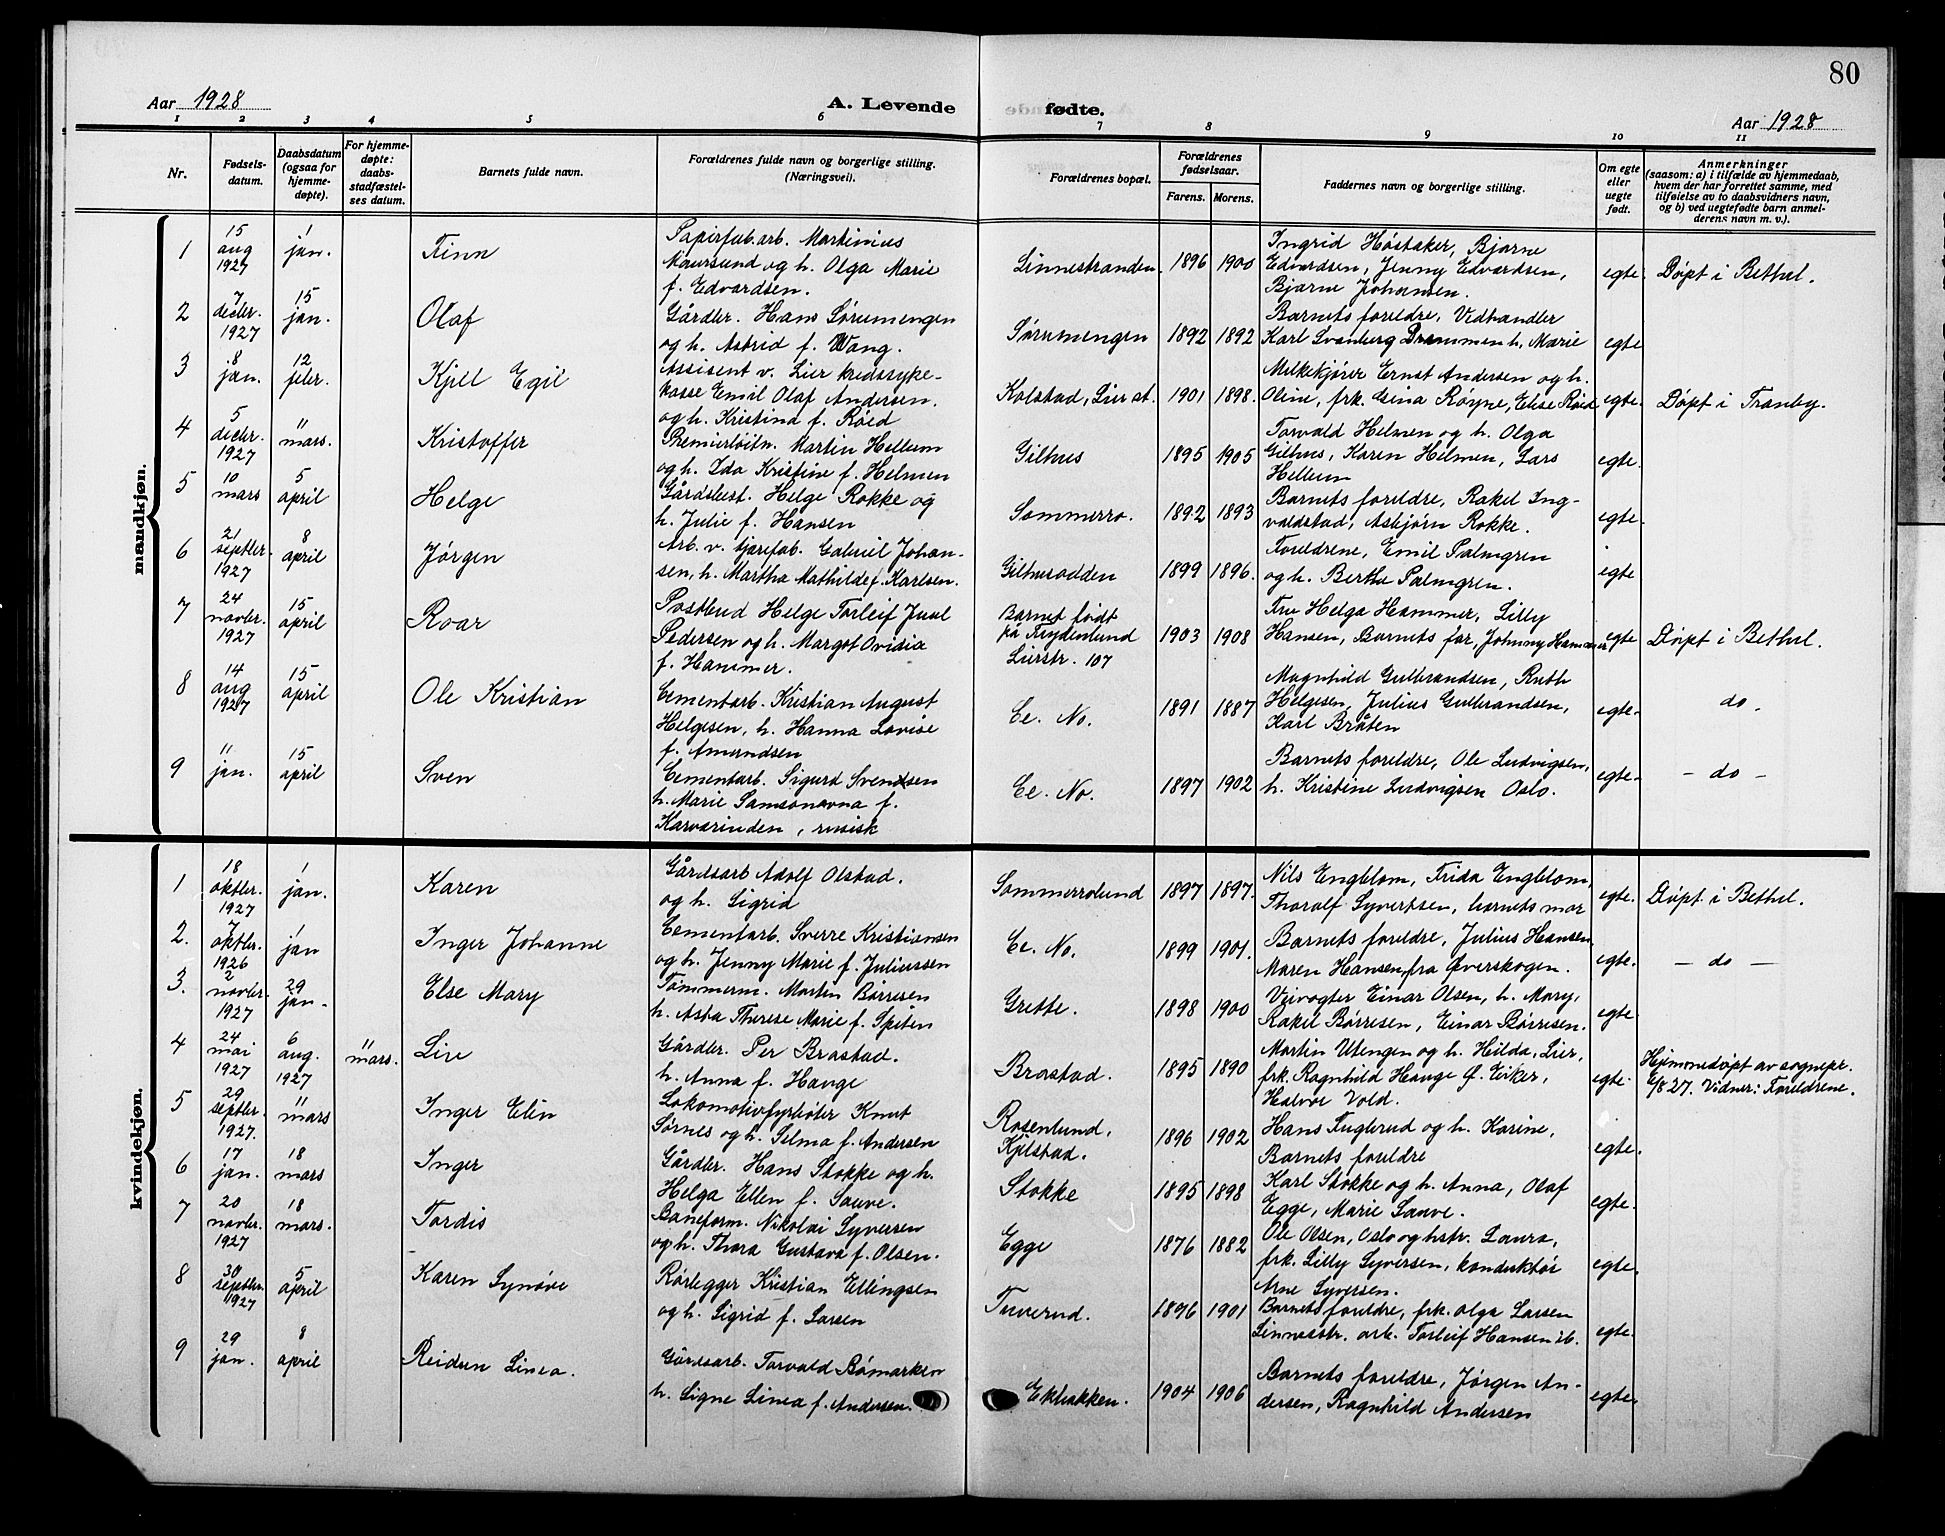 80
Aar 1928
A. Levende fødte.
Aar 1928
1 2 3 4 5 6 7 8 9 10 11
Nr.
Fødsels-
datum.
Daabsdatum
(ogsaa for
hjemme-
døpte).
For hjemme-
døpte:
daabs-
stadfæstel-
ses datum.
Barnets fulde navn.
Forældrenes fulde navn og borgerlige stilling.
(Næringsvei).
Forældrenes bopæl.
Forældrenes
fødselsaar.
Farens. Morens.
Faddernes navn og borgerlige stilling.
Om egte
eller
uegte
født.
Anmerkninger
(saasom: a) i tilfælde av hjemmedaab,
hvem der har forrettet samme, med
tilføielse av to daabsvidners navn,
og b) ved uegtefødte barn anmel-
derens navn m. v.).
mandkjøn.
1
15
aug
1927
1
jan.
Finn
Papirfab.arb. Martinius
Maursund og h. Olga Marie
f. Edvardsen.
Linnestranden.
1896 1900
Ingrid Høstaker, Bjarne
Edvardsen, Jenny Edvardsen,
Bjarne Johansen.
egte.
Døpt i Bethel.
2
7
decbr.
1927
15
jan.
Olaf
Gårdbr. Hans Sørumengen
og h. Astrid f. Wang.
Sørumengen
1892 1892
Barnets foreldre, Vedhandler
Karl Svanberg Drammen h. Marie
egte
3
8
jan.
12
febr.
Kjell Egil
Assisent v. Lier kredssyke-
kasse Emil Olaf Andersen.
og h. Kristina f. Røed
Kolstad, Lier st.
1901 1898.
Melkekjører Ernst Andersen og h.
Oline, frk. Gina Røyne, Elise Røed
egte.
Døpt i Tranby.
4
5
decbr.
1927
11
mars.
Kristoffer
Premierløitn. Martin Hellum
og h. Ida Kristine f. Helmen
Gilhus
1895 1905
Torvald Helmen og h. Olga
Gilhus, Karen Helmen, Lars
Hellum
egte.
5
10
mars
5
april
Helge
Gårdsbest. Helge Rokke og
h. Julie f. Hansen
Sommerro.
1892 1893
Barnets foreldre, Rakel Ing-
valdstad, Asbjørn Rokke.
egte.
6
21
septbr.
1927
8
april
Jørgen
Arb. v. tjærefab. Gabriel Johan-
sen, h. Martha Mathilde f. Karlsen.
Gilhusodden
1899 1896.
Foreldrene, Emil Palmgren
og h. Bertha Palmgren.
egte
7
24
novbr.
1927
15
april
Roar
Postbud Helge Torleif Juul
Pedersen og h. Margot Ovidia
f. Hammer.
Barnet født
på Frydenlund
Lierstr. 107
1903 1908
Fru Helga Hammer, Lilly
Hansen, Barnets far, Johnny Hammer
egte
Døpt i Bethel.
8
14
aug
1927
15
april
Ole Kristian
Cementarb. Kristian August
Helgesen, h. Hanna Lovise
f. Amundsen
Ee. No.
1891 1887
Magnhild Gulbrandsen, Ruth
Helgesen, Julius Gulbrandsen,
Karl Bråten
egte.
do.
9
11
jan.
15
april
Sven
Cementarb. Sigurd Svendsen
h. Marie Samsonovna f.
Karvarinden, russisk
Ee. No.
1897 1902
Barnets foreldre, Ole Ludvigsen,
h. Kristine Ludvigsen Oslo.
egte.
– do –
kvindekjøn.
1
18
oktbr.
1927
1
jan.
Karen
Gårdsarb Adolf Olstad.
og h. Sigrid
Sommerrolund
1897 1897.
Nils Engblom, Frida Engblom,
Thoralf Syvertsen, barnets mor
egte.
Døpt i Bethel.
2.
7
oktbr.
1926
1
jan
Inger Johanne
Cementarb. Sverre Kristiansen
og h. Jenny Marie f. Juliussen
Ee. No.
1899 1901.
Barnets foreldre, Julius Hansen
Maren Hansen, fra Øverskogen.
egte.
– do –
3.
2
novbr.
1927
29
jan.
Else Mary
Tømmerm. Morten Børresen
h. Asta Therese Marie f. Spiten
Grette.
1898 1900
Veivogter Einar Olsen, h. Mary,
Rakel Børresen, Einar Børresen.
egte.
4
24
mai
1927
6
aug.
1927
11
mars.
Liv
Gårdbr. Per Brastad.
h. Anna f. Hauge
Brastad.
1895 1890
Martin Utengen og h. Hilda, Lier,
frk. Ragnhild Hauge Ø. Eiker,
Halvor Vold.
egte.
Hjemmedøpt av sognepr.
6/8 27. Vidner: Foreldrene.
5
29
septbr.
1927.
11
mars
Inger Elin
Lokomotivfyrbøter Knut
Sørnes og h. Selma f. Andersen
Rosenlund,
Kjelstad.
1896 1902
Hans Fuglerud og h. Karine,
Barnets foreldre
egte.
6
17
jan.
18
mars
Inger
Gårdbr. Hans Stokke og h.
Helga Ellen f. Sauve.
Stokke
1895 1898
Karl Stokke og h. Anna, Olaf
Egge, Marie Sauve.
egte.
7
20
novbr.
1927
18
mars.
Tordis
Baneform. Nikolai Syversen
og h. Thora Gustava f. Olsen.
Egge
1876 1882
Ole Olsen, Oslo og hstr. Laura,
frk. Lilly Syversen, konduktør
Arne Syversen.
egte.
8
30
septbr.
1927
5
april
Karen Synøve
Rørlegger Kristian Ellingsen
og h. Sigrid f. Larsen
Tuverud.
1896 1901
Barnets foreldre, frk. Olga Larsen
Linnesstr. arb. Torleif Hansen ib.
egte.
9
29
jan.
8
april
Reidun Linea.
Gårdsarb. Torvald Bømarken
h. Signe Linea f. Andersen.
Ekbakken.
1904 1906
Barnets foreldre, Jørgen An-
dersen, Ragnhild Andersen
egte.